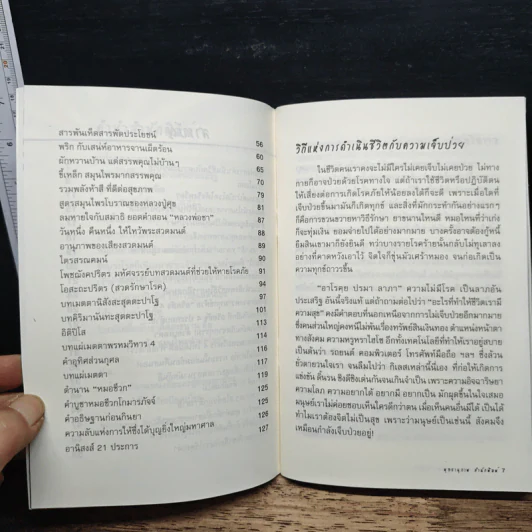 สารพันเห็ดสารพัดประโยชน์ 56
พริก กับเสน่ห์อาหารจานเผ็ดร้อน 60
ผักหวานบ้าน แต่สรรพคุณไม่บ้านๆ 65
ขี้เหล็ก สมุนไพรมากสรรคุณ 67
รวมพลังห้าสี ที่ดีต่อสุขภาพ 70
สูตรสมุนไพรโบราณของหลวงปู่ศุข 76
ลมหายใจกับสมาธิ ยอดคำสอน "หลวงพ่อชา" 79
วันหนึ่ง คืนหนึ่ง ให้ไหว้พระสวดมนต์ 84
อานุภาพของเสียงสวดมนต์ 87
ไตรสรณคมน์ 90
โพชฌังคปริตร มหัศจรรย์บทสวดมนต์ที่ช่วยให้หายโรคภัย 91
โอสะถะปริตร (สวดรักษาโรค) 94
บทเมตตานิสังสะสุตตะปาโฐ 97
บทคิริมานันทะสุตตะปาโฐ 101
อิติปิโส 113
บทแผ่เมตตาพรหมวิหาร 4 114
คำอุทิศส่วนกุศล 117
บทแผ่เมตตา 119
ตำนาน "หมอชีวก" 120
คำบูชาหมอชีวกโกมารภัจจ์ 125
คำอธิษฐานก่อนกินยา 125
ความลับแห่งการให้ซึ่งได้บุญยิ่งใหญ่มหาศาล 126
อานิสงส์ 21 ประการ 127
วิถีแห่งการดำเนินชีวิตกับความเจ็บป่วย
ในชีวิตคนเราคงจะไม่มีใครไม่เคยเจ็บไม่เคยป่วย ไม่ทาง
กายก็อาจป่วยด้วยโรคทางใจ แต่ถ้าเราใช้ชีวิตหรือปฏิบัติตน
ให้เสี่ยงต่อการเกิดโรคภัยให้น้อยลงได้ก็จะดี เพราะเมื่อใดที่
เจ็บป่วยขึ้นมามันก็เกิดทุกข์ และสิ่งที่มักกระทำกันอย่างแรกๆ
ก็คือการขวนขวายหาวิธีรักษา ยาขนานไหนดี หมอไหนที่ว่าเก่ง
ก็จะทุ่มเงิน ยอมจ่ายไปได้อย่างมากมาย บางครั้งอาจต้องกู้หนี้
ยืมสินเขามาก็ยังยินดี ทว่าบางรายโรคร้ายนั้นกลับไม่ทุเลาลง
อย่างที่คาดหวังเอาไว้ จิตใจก็ขุ่นมัวเศร้าหมอง จนก่อเกิดเป็น
ความทุกข์ถาวรขึ้น
"อาโรคฺย ปรมา ลาภา" ความไม่มีโรค เป็นลาภอัน
ประเสริฐ อันนี้จริงแท้ แต่ถ้าถามต่อไปว่า "อะไรที่ทำให้ชีวิตเรามี
ความสุข" คงมีคำตอบที่นอกเหนือจากการไม่เจ็บป่วยอีกมากมาย
ซึ่งคนส่วนใหญ่คงหนีไม่พ้นเรื่องทรัพย์สินเงินทอง ตำแหน่งหน้าตา
ทางสังคม ความหรูหราไฮโซ อีกทั้งเทคโนโลยีที่ทำให้เราอยู่สบาย
เป็นต้นว่า รถยนต์ คอมพิวเตอร์ โทรศัพท์มือถือ ฯลฯ ซึ่งล้วน
ยั่วตายวนใจเรา จนลืมไปว่า กิเลสเหล่านี้นี่เอง ที่ก่อให้เกิดการ
แข่งขัน ดิ้นรน ชิงดีชิงเด่นกันจนเกินจำเป็น เพราะความอิจฉาริษยา
ความโลภ ความอยากได้ อยากมี อยากเป็น มักผุดขึ้นในใจเสมอ
มนุษย์เราไม่ค่อยชอบเห็นใครดีกว่าตน เมื่อเห็นคนอื่นมีได้ เป็นได้
ทำไมเราต้องจิตไม่เป็นสุข เพราะว่ามนุษย์เป็นเช่นนี้ สังคมจึง
เหมือนกำลังเจ็บป่วยอยู่!
7